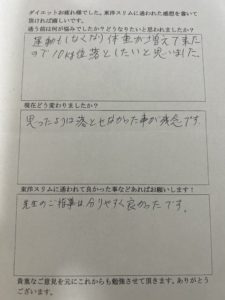 ダイエットお疲れ様でした。東洋スリムに通われた感想を書いて
頂ければ嬉しいです。
通う前は何が悩みでしたか？どうなりたいと思われましたか？
運動もしなくなり体重が増えて来た
ので10kg位落としたいと思いました。
現在どう変わりましたか？
思ったようは落とせなかった事が残念です。
東洋スリムに通われて良かった事などあればお願いします！
先生のご指導は分りやすく良かったです。
貴重なご意見を元にこれからも勉強させて頂きます。ありがとう
ございます。